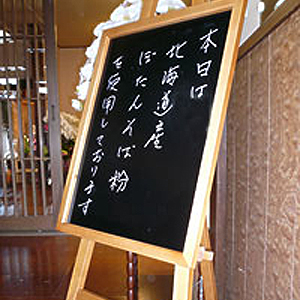 本日は
北海道産
ぼたんそば粉
を使用しております